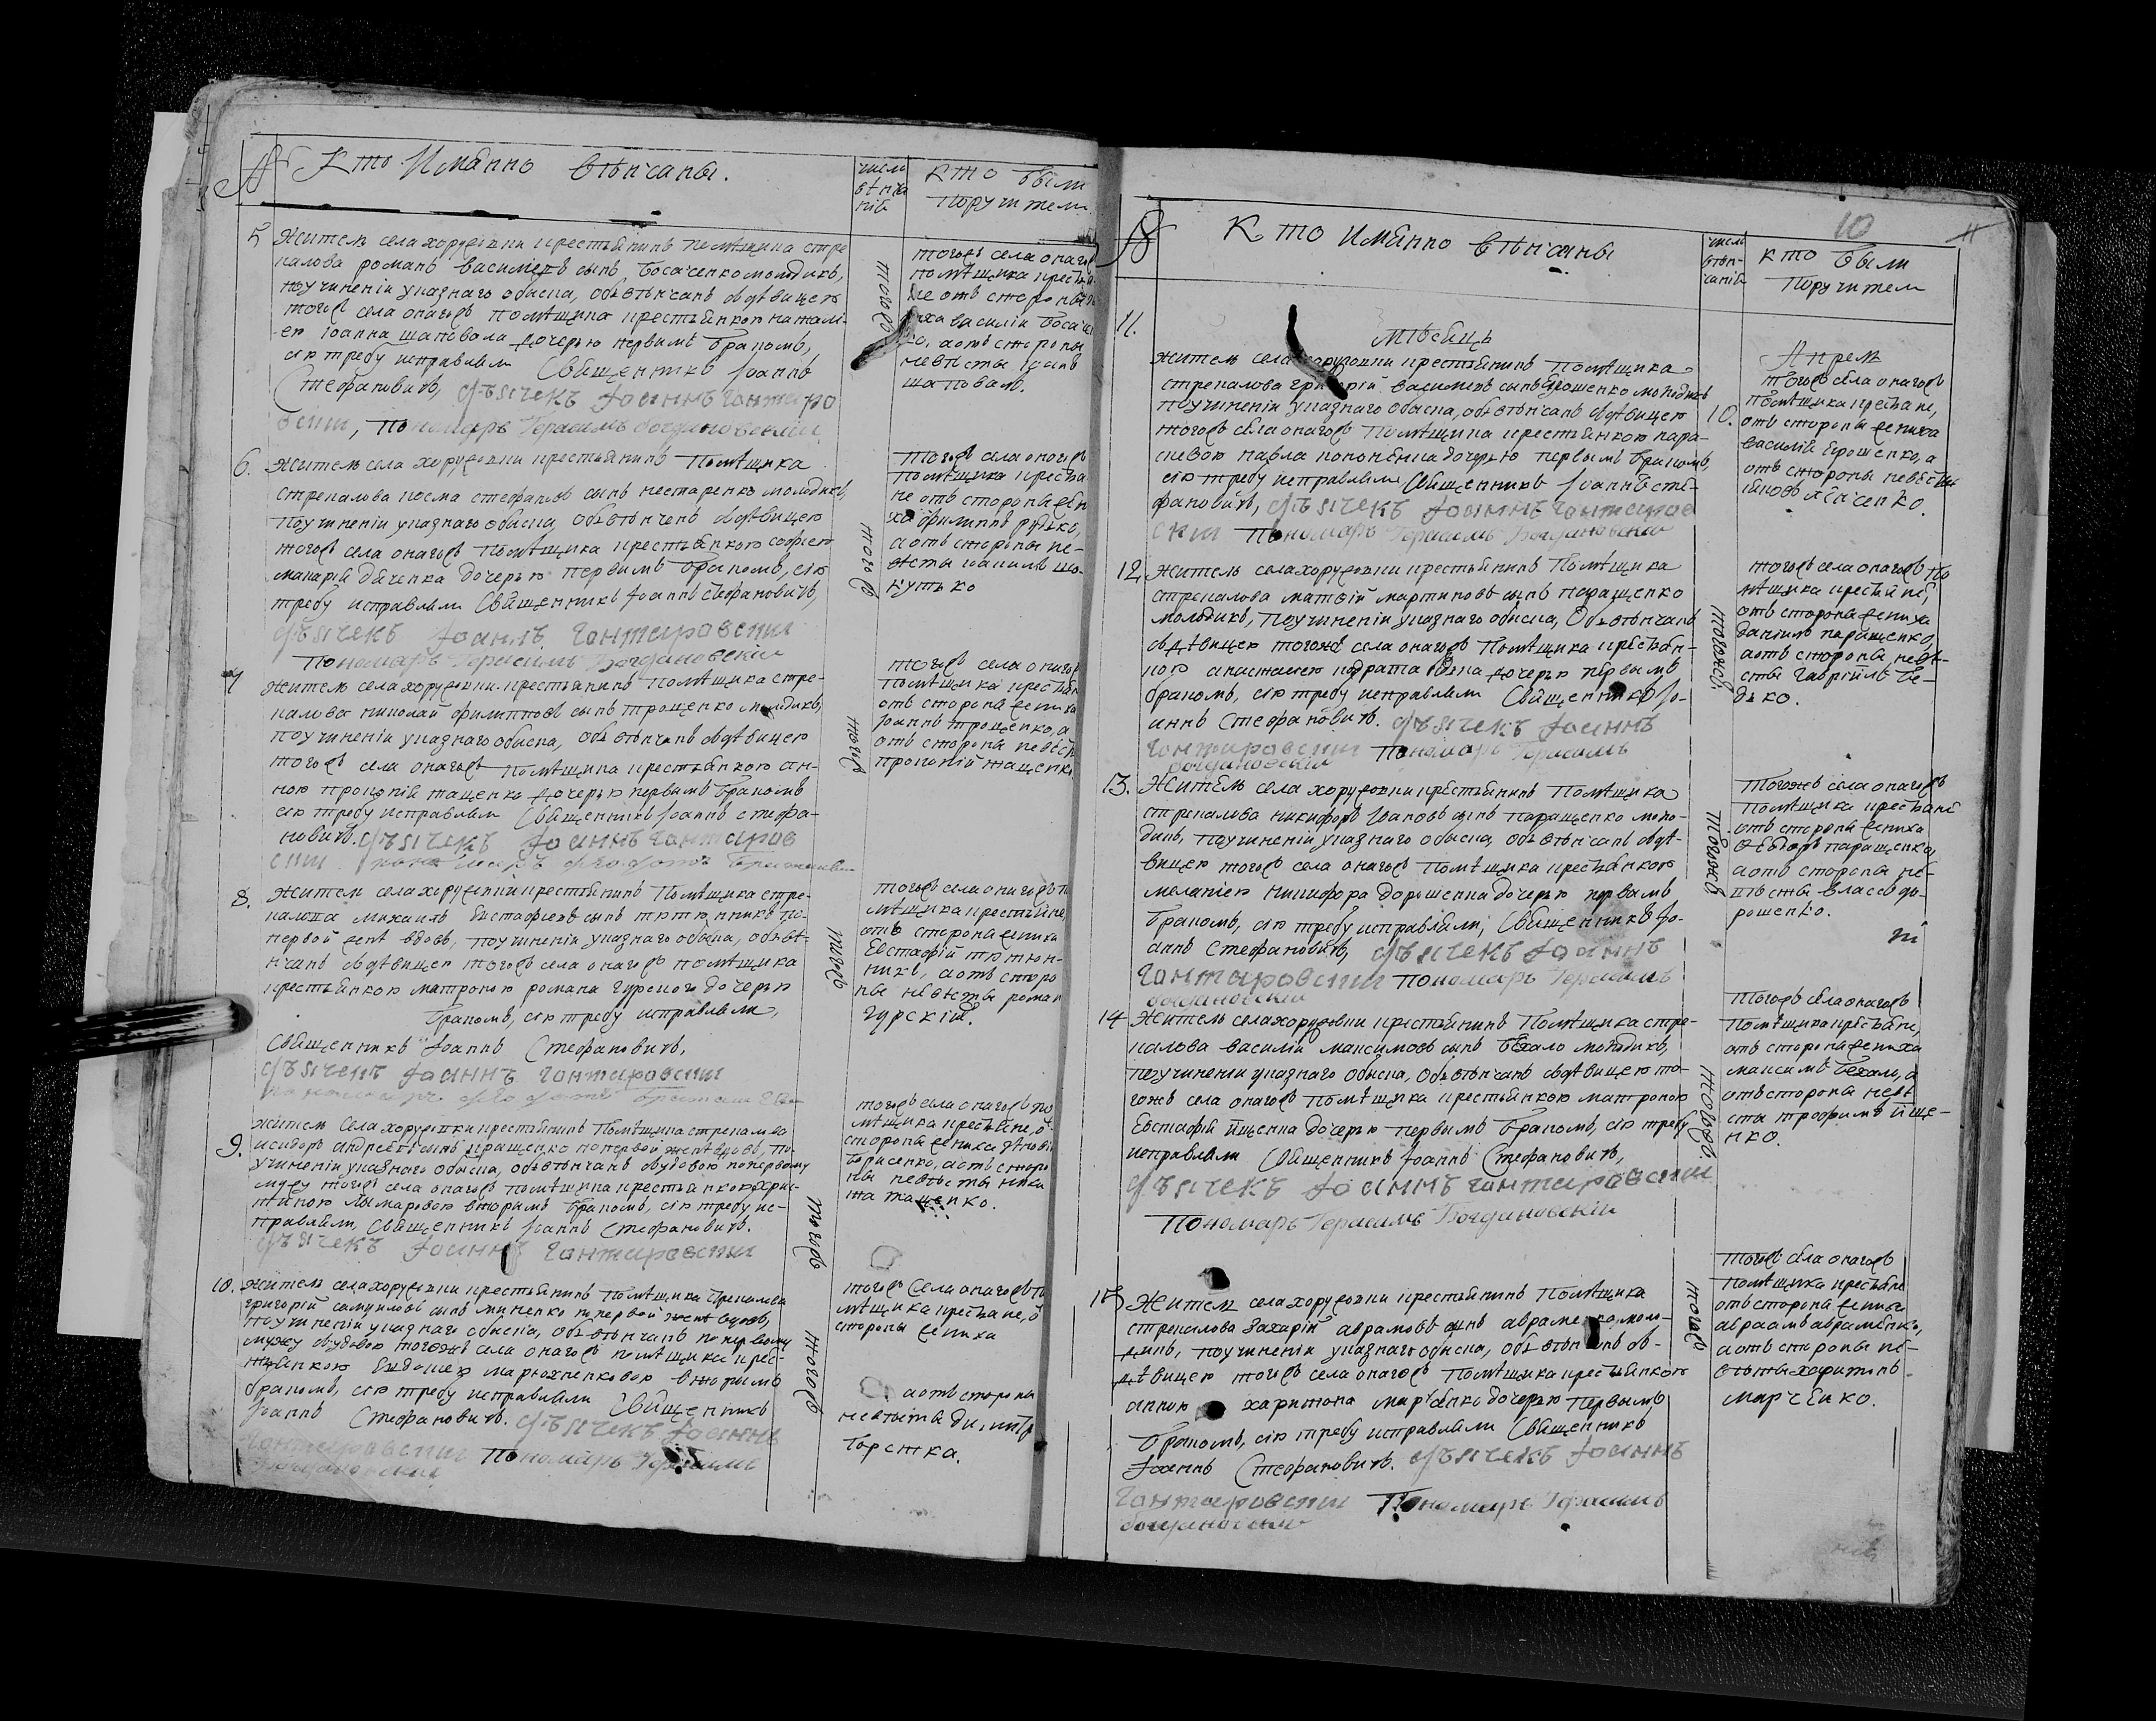 № Кто Имянно Венчаны.
число венчаній
кто были Поручители
5 Житель села хоружовки крестьянинъ помѣщика стре-
калова романъ василіевъ сынъ, босаченко молодикъ,
поучиненіи указнаго обыска, обвѣнчанъ здѣвицею
тогожъ села онагожъ помѣщика крестьянкою наталі-
ею іоанна шаповала дочерью первымъ бракомъ,
сію требу исправляли Священникъ Іоаннъ
Стефановичъ, дьячекъ Іоаннъ Гонтаро
вскии, Пономарь Герасимъ богдановскіи
тогожъ
тогожъ села онагожъ
помѣщика крестья
не отъ стороны
василіи босаче
отъ стороны
невѣсты
шаповалъ.
6. Житель села хоружовки крестьянинъ Помѣщика
стрекалова косма стефановъ сынъ нестеренко молодикъ,
поучиненіи указнаго обыска, обвѣнченъ здѣвицею
тогожъ села онагожъ помѣщика крестьянкою софіею
макарія дяченка дочерью первимъ бракомъ, сію
требу исправляли Священникъ Іоаннъ Стефановичъ,
дьячекъ Іоаннъ Гонтаровскии
Пономарь Герасимъ Богдановскіи
тогожъ
тогожъ села онагожъ
Помѣщика крестья
не отъ стороны жени
ха филиппъ рудько,
аотъ стороны не-
вѣсты
7 Житель села хоружовки крестьянинъ помѣщика стре-
калова николай филипповъ сынъ трощенко молодикъ,
поучиненіи указнаго обыска, обвѣнчанъ здѣвицею
тогожъ села онагожъ помѣщика крестьянкою ан-
ною прокопія тащенка дочерью первымъ бракомъ
сію требу исправляли Священникъ Іоаннъ стефа-
новичъ. дьячекъ Іоаннъ Гонтаров
скии
тогожъ
тогожъ села онагожъ
помѣщика крестьян
отъ стороны жениха
Іоаннъ трощенко, а
отъ стороны невѣст
прокопій тащенко
8. Житель села хоружовки крестьянинъ Помѣщика стре-
калова михаилъ Евстафіевъ сынъ тютюнникъ, по
первой женѣ вдовъ, поучиненіи указнаго обыска, обвѣ-
нчанъ здѣвицею тогожъ села онагожъ помѣщика
крестьянкою матроною романа гурского дочерью
бракомъ, сію требу исправляли,
Священникъ Іоаннъ Стефановичъ,
дьячекъ Іоаннъ Гонтаровскии
тогожъ
тогожъ села онагожъ по
мѣщика крестьяне,
отъ стороны жениха
Евстафій тютюн-
никъ, аотъ сторо
ны невѣсты роман
гурскій.
9. житель Села хоружовки крестьянинъ Помѣщика стрекалова
исидоръ андреевъ сынъ по первой женѣ вдовъ, по-
учиненіи указнаго обыска, обвѣнчанъ звдовою по первому
мужу тогожъ села онагожъ помѣщика крестьянкою хрис-
тиною вторымъ бракомъ, сію требу ис-
правляли, Священникъ Іоаннъ Стефановичъ.
дьячекъ Іоаннъ Гонтаровскии
тогожъ
тогожъ села онагожъ по
мѣщика крестьяне, о
стороны жениха
борисенко, аотъ сторо
ны невѣсты ники
та тащенко.
10. Житель села хоружовки крестьянинъ помѣщика стрекалова
григорій самуиловъ сынъ миненко по первой женѣ вдовъ,
поучиненіи указнаго обыска, обвѣнчанъ по первому
мужу звдовою тогожъ села онагожъ помѣщика крес-
тьянкою Евдокіею вторымъ
бракомъ, сію требу исправляли Священникъ
Іоаннъ Стефановичъ. дьячекъ Іоаннъ
Гонтаровскии Пономарь Герасимъ
Богдановскіи
тогожъ
тогожъ Села онагожъ по
мѣщика крестьяне, о
стороны жениха
аотъ стороны
невѣсты
торстка.
10
11
№ Кто Имянно Венчаны
число вѣн-чанія
кто были Поручители
11. Мѣсяцъ
Апрель
Житель села хоружовки крестьянинъ Помѣщика
стрекалова григорій василіевъ сынъ ярошенко молодикъ
поучиненіи указнаго обыска, обвѣнчанъ здѣвицею
тогожъ села онагожъ помѣщика крестьянкою пара-
скевою павла дочерью первымъ бракомъ,
сію требу исправляли Священникъ Іоаннъ сте-
фановичъ, дьячекъ Іоаннъ Гонтаров
скии Пономарь Герасимъ Богдановскіи
10.
тогожъ села онагожъ
помѣщика крестьяне,
отъ стороны жениха
василій ярошенко, а
отъ стороны невѣсты
12 Житель села хоружовки крестьянинъ Помѣщика
стрекалова матвій мартиновъ сынъ паращенко
молодикъ, поучиненіи указнаго обыска, Обвѣнчанъ
здѣвицею тогожъ села онагожъ Помѣщика крестьян-
кою анастасіею дочерью первымъ
бракомъ, сію требу исправляли Священникъ Іо-
аннъ Стефановичъ. дьячекъ Іоаннъ
Гонтаровскии Пономарь Герасимъ
богдановскіи
тогожъ
тогожъ села онагожъ по
мѣщика крестьяне,
отъ стороны жениха
даніилъ паращенко,
аотъ стороны невѣ-
сты гавріилъ бе-
дько.
13. Житель села хоружовки крестьянинъ Помѣщика
стрекалова никифоръ Ивановъ сынъ паращенко моло-
дикъ, поучиненіи указнаго обыска, обвѣнчанъ здѣ-
вицею тогожъ села онагожъ помѣщика крестьянкою
меланіею никифора дорошенка дочерью первымъ
бракомъ, сію требу исправляли, Священникъ Іо-
аннъ Стефановичъ, дьячекъ Іоаннъ
Гонтаровскии Пономарь Герасимъ
богдановскіи
тогожъ
Тогожъ села онагожъ
помѣщика крестьяне
отъ стороны жениха
Ѳеодоръ паращенко,
аотъ стороны не-
вѣсты власъ до-
рошенко.
14 Житель села хоружовки крестьянинъ Помѣщика стре-
калова василіи максимовъ сынъ бехало молодикъ,
поучиненіи указнаго обыска, обвѣнчанъ здѣвицею то-
гожъ села онагожъ помѣщика крестьянкою матроною
Евстафія йщенка дочерью первымъ бракомъ, сію требу
исправляли Священникъ Іоаннъ Стефановичъ,
дьячекъ Іоаннъ Гонтаровскии
Пономарь Герасимъ Богдановскіи
тогожъ
тогожъ села онагожъ
помѣщика крестьяне,
отъ стороны жениха
максимъ бехало, а
отъ стороны невѣ
сты трофимъ йще-
нко.
15 Житель села хоружовки крестьянинъ помѣщика
стрекалова Захарій аврамовъ сынъ авраменко моло-
дикъ, поучиненіи указнаго обыска, обвѣнчанъ з-
дѣвицею тогожъ села онагожъ помѣщика крестьянкою
анною харитона марченка дочерью первымъ
бракомъ, сію требу исправляли Священникъ
Іоаннъ Стефановичъ. дьячекъ Іоаннъ
Гонтаровскии Пономарь Герасимъ
богдановскіи
тогожъ
тогожъ села онагожъ
помѣщика крестьяне
отъ стороны жениха
авраамъ авраменко,
аотъ стороны не-
вѣсты харитонъ
марченко.